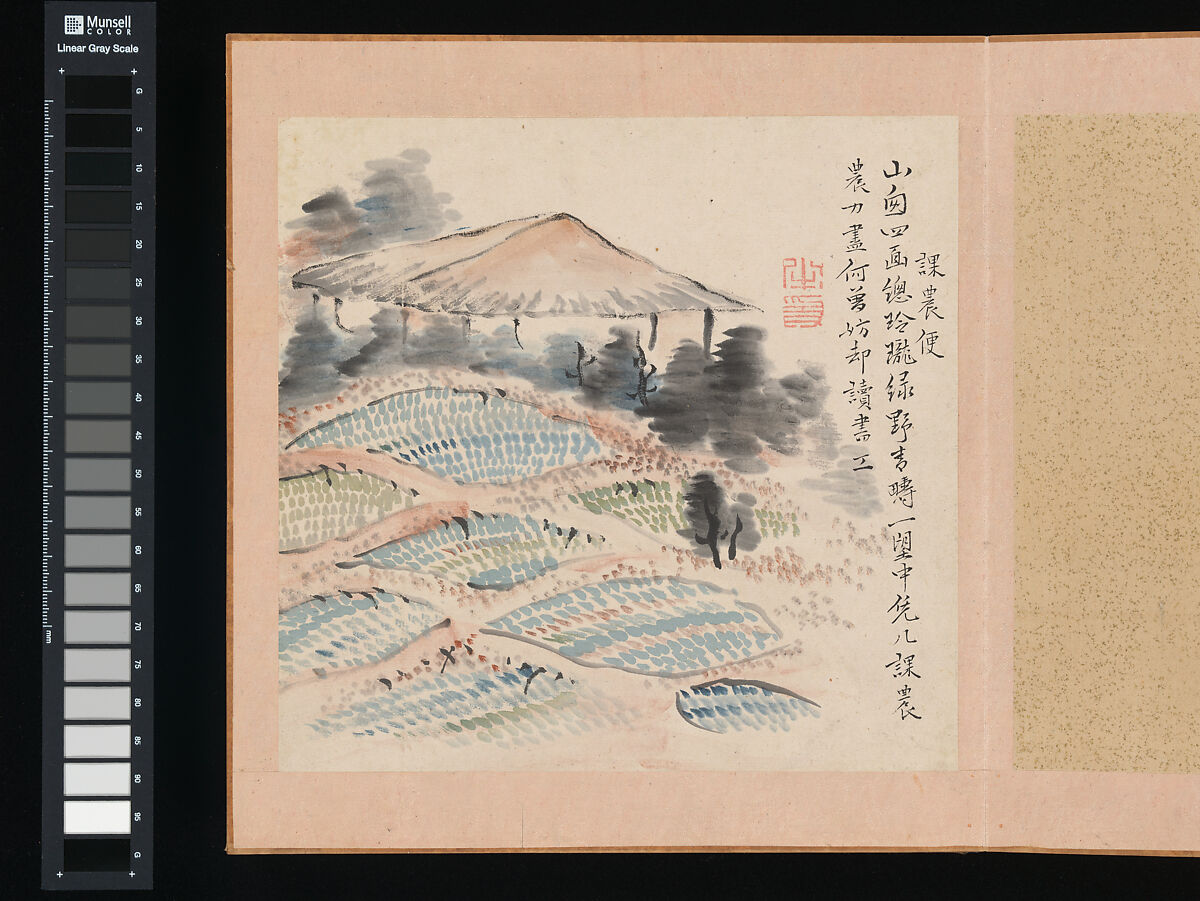 Munsell
COLOR
Linear Gray Scale
G
5
10
15
20
25
30
35
40
45
50
55
60
65
70
75
80
85
90
95
G
mm
課農便
山囱四面總玲瓏緑野青疇一望中凭几課農
農力盡何曾妨却讀書工